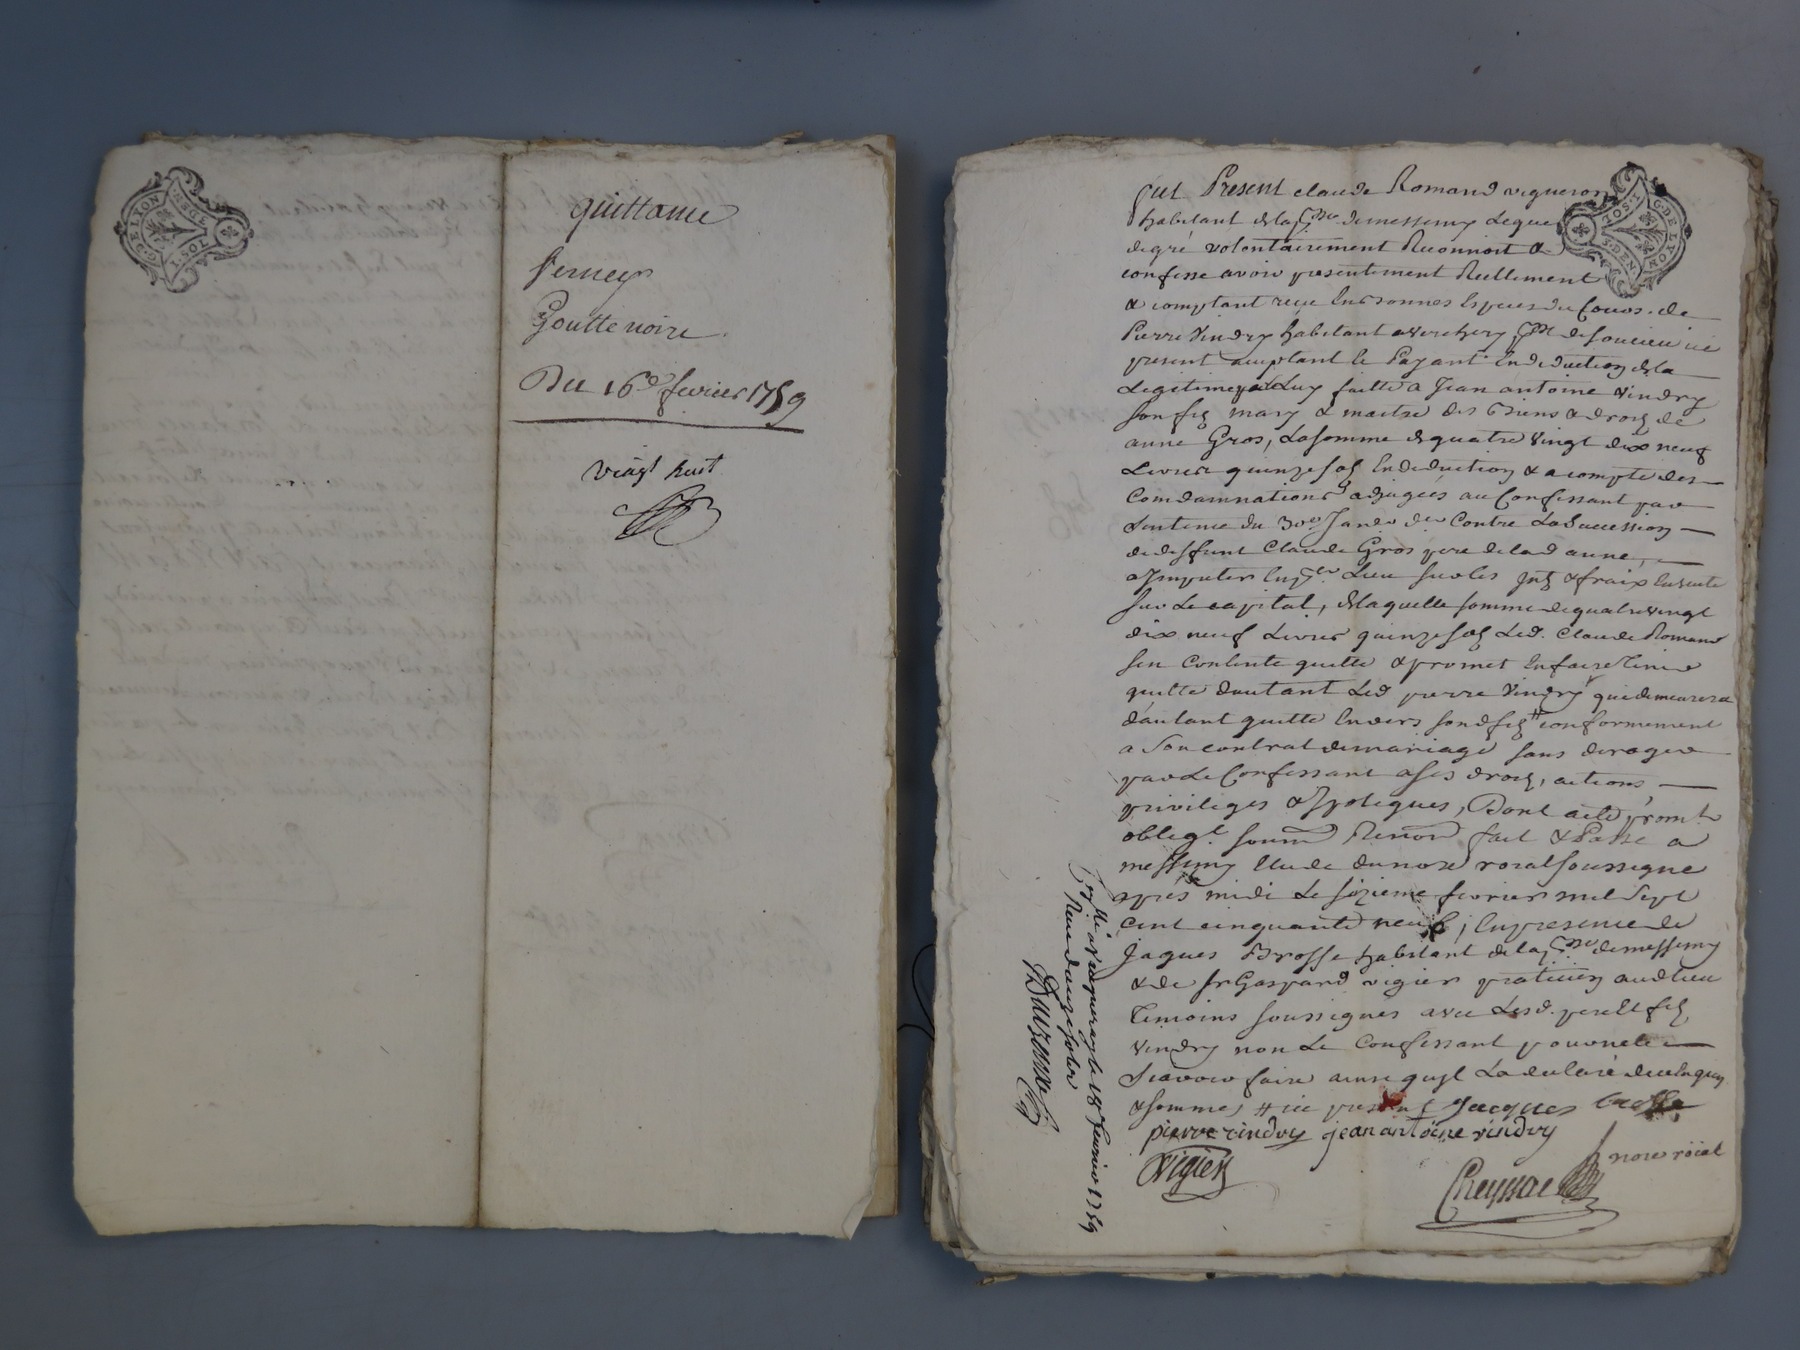 G. DE LYON
1 SOL
3 DEN.
quittance
Verney
Goutte noire
Du 16e fevrier 1759
vingt huit
fut Present claude Romand vigneron
habitant de la psse de messimy Lequel
de gré volontairement Reconnoit &
confesse avoir presentement Reellement
& comptant reçu En bonnes Especes du Cours de
Pierre Vindry habitant a Verchery psse de soucieu ici
present acceptant le Payant En deduction de la
Legitime par Luy faitte a Jean antoine Vindry
son fils mary & maitre des Biens & droits de
anne Gros, La somme de quatre vingt dix neuf
Livres quinze sols En deduction & a compte des
Condamnations adjugées au Confessant par
Sentence du 30e Janv der Contre La Succession
de deffunt Claude Gros pere de lad anne,
a Imputer En pr Lieu sur les Ints & fraix Ensuite
sur Le capital, de laquelle somme de quatre vingt
dix neuf Livres quinze sols Led. Claude Romand
sen contente quitte & promet En faire Tenir
quitte dautant Led pierre Vindry qui demeurera
dautant quitte Envers sond fils # conformement
a son contrat de mariage sans deroger
par Le Confessant a ses droits, actions
privileges & Ypoteques, Dont acte promt
obligt. soumn Renon fait & Passé a
messimy Etude du nore roial soussigne
apres midi Le sizieme fevrier mil sept
cent cinquante neuf, En presence de
Jaques Brosse habitant de la psse de messimy
& de sr Gaspard vigier praticien aud lieu
Temoins soussignes avec Lesd. pere Et fils
Vindry non Le Confessant pour ne le
Scavoir faire ainsi quil La declaré de ce Enquis
& sommé, # ice present Jacques brosse
pierre vindry jean antoine vindry
Vigier
Cheyssac nore roial
G. DE LYON
1 SOL
3 DEN.
Conllé a Vaugneray le 18 fevrier 1759
Reçu douze sols
Dauzance